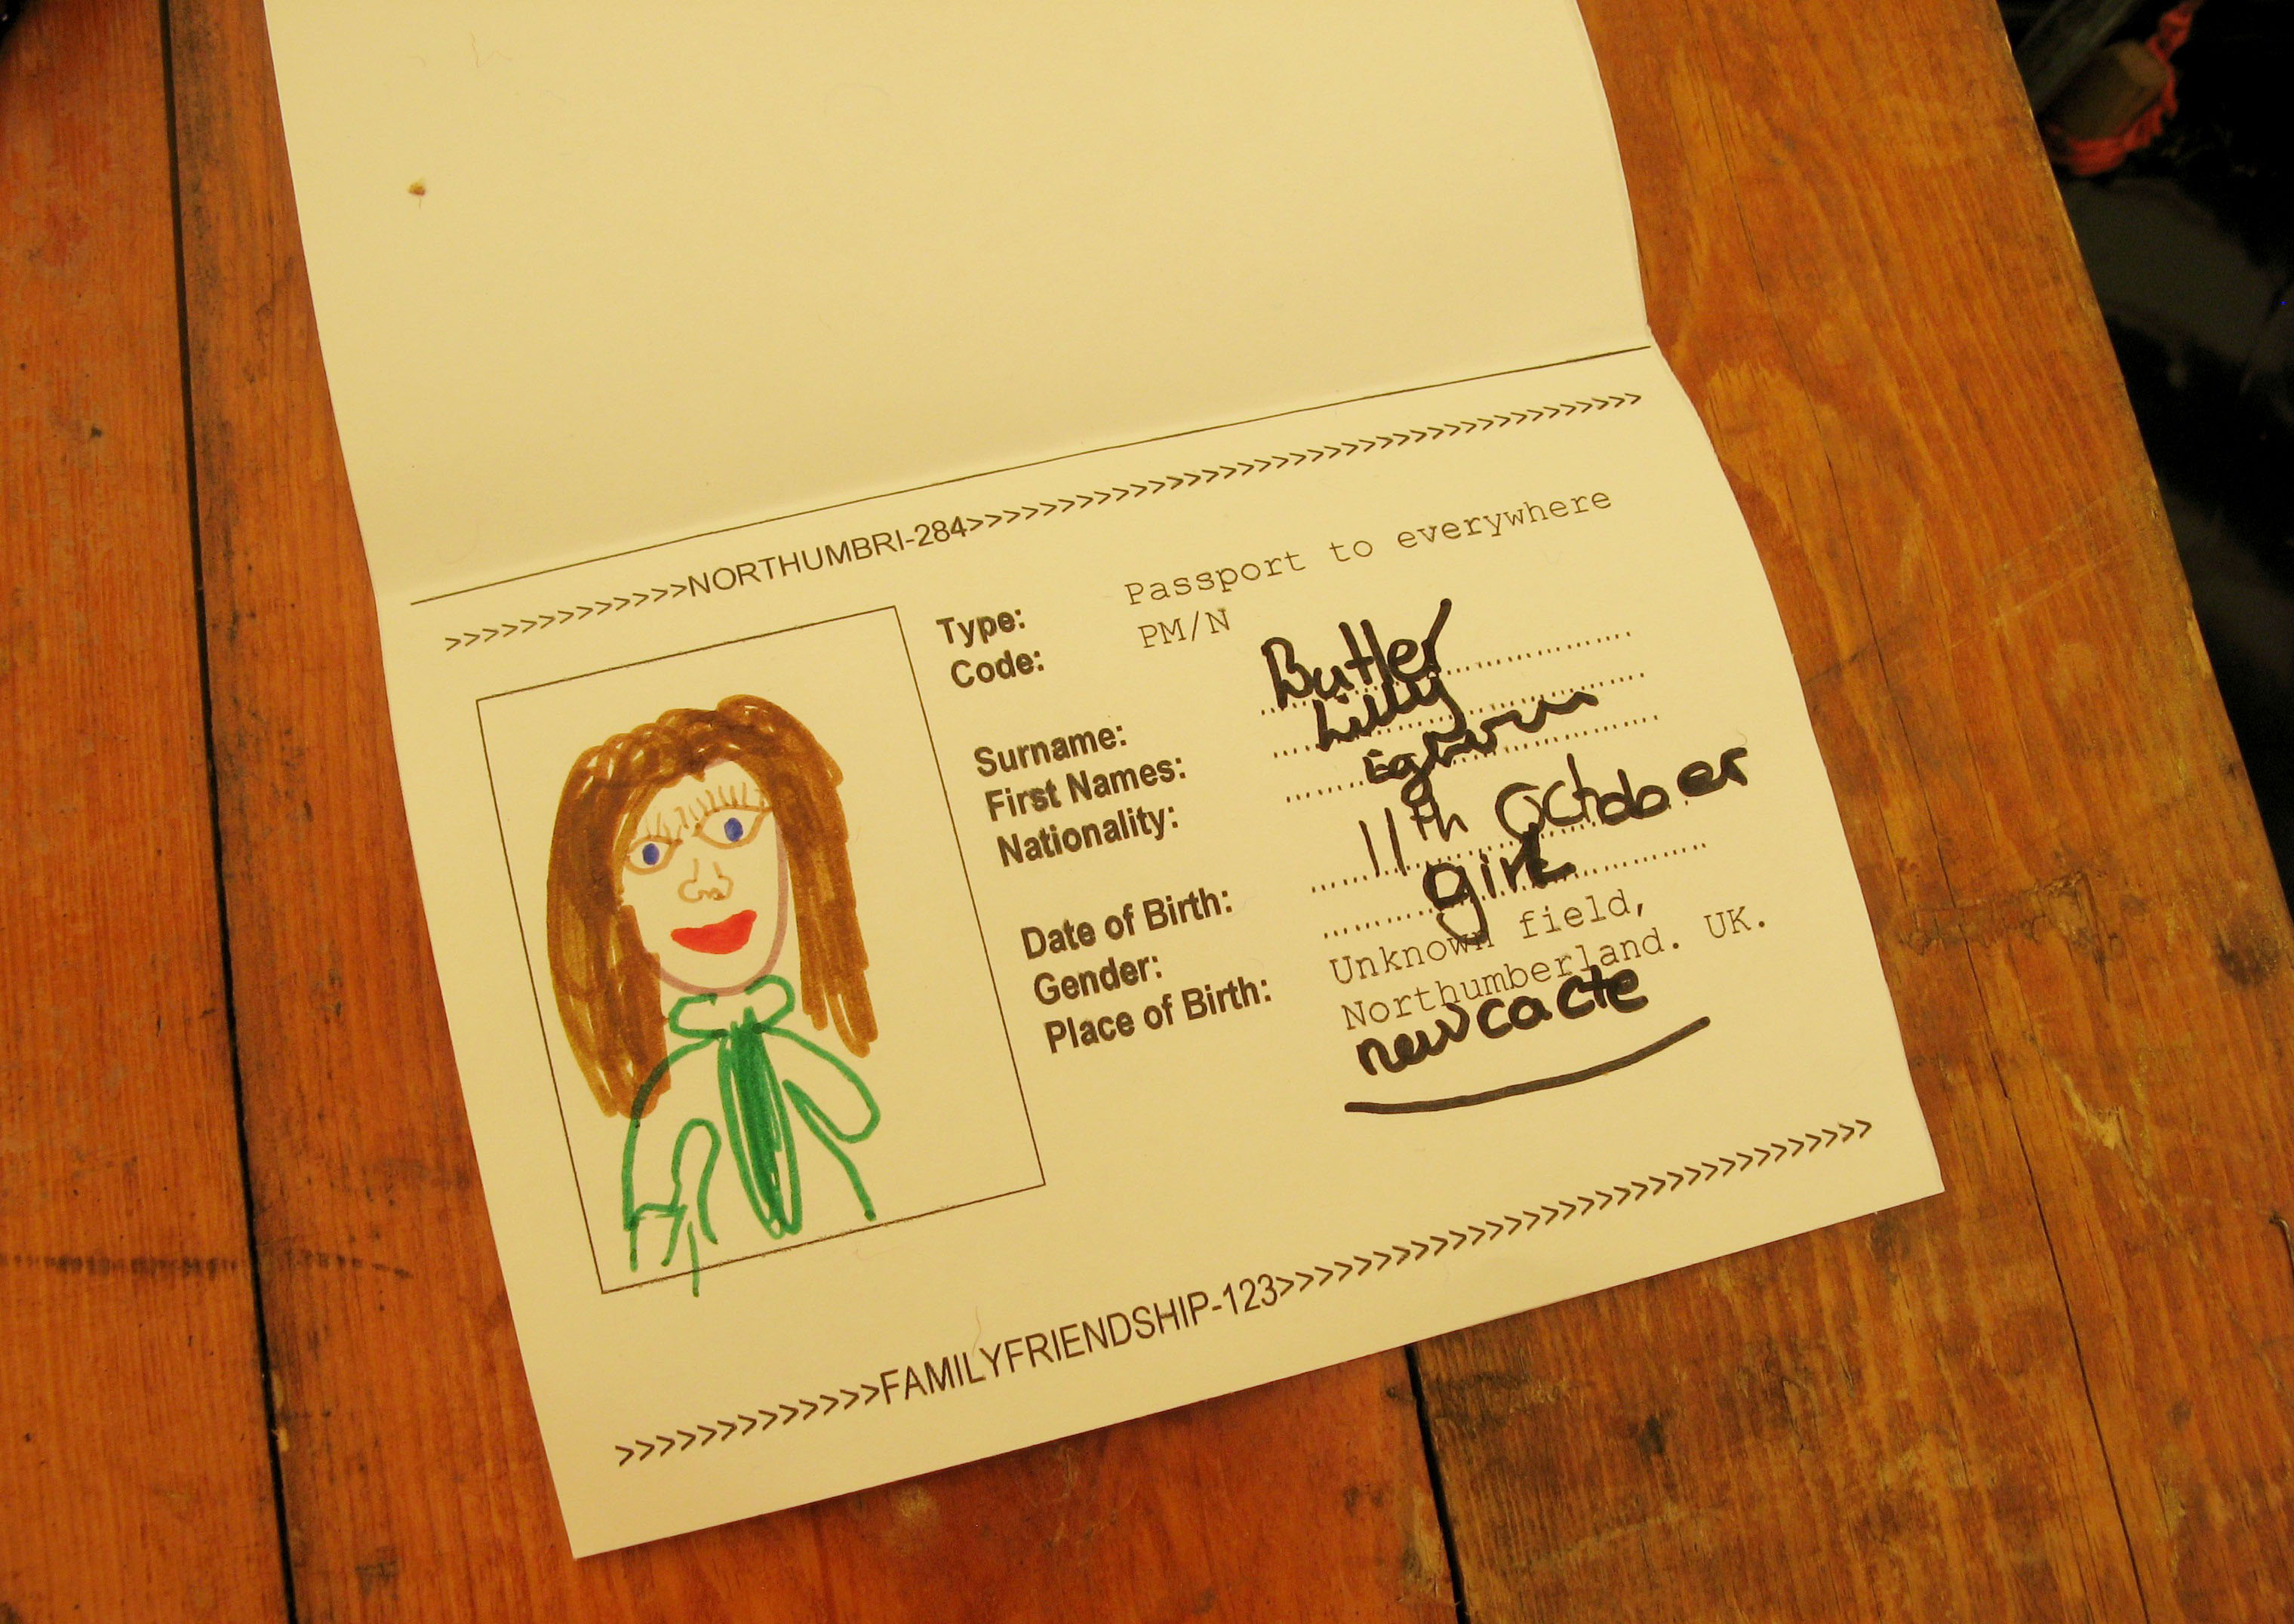 >>>>>>>>>>>>>NORTHUMBRI-284>>>>>>>>>>>>>>>>>>>>>>>>>>>>>>>>>>>>
Type: Passport to everywhere
Code: PM/N
Surname: Butler
First Names: Lilly
Nationality:
Date of Birth: 11th October
Gender: girl
Place of Birth: Unknown field,
Northumberland. UK.
newcacte
>>>>>>>>>>>>>FAMILYFRIENDSHIP-123>>>>>>>>>>>>>>>>>>>>>>>>>>>>>>>>